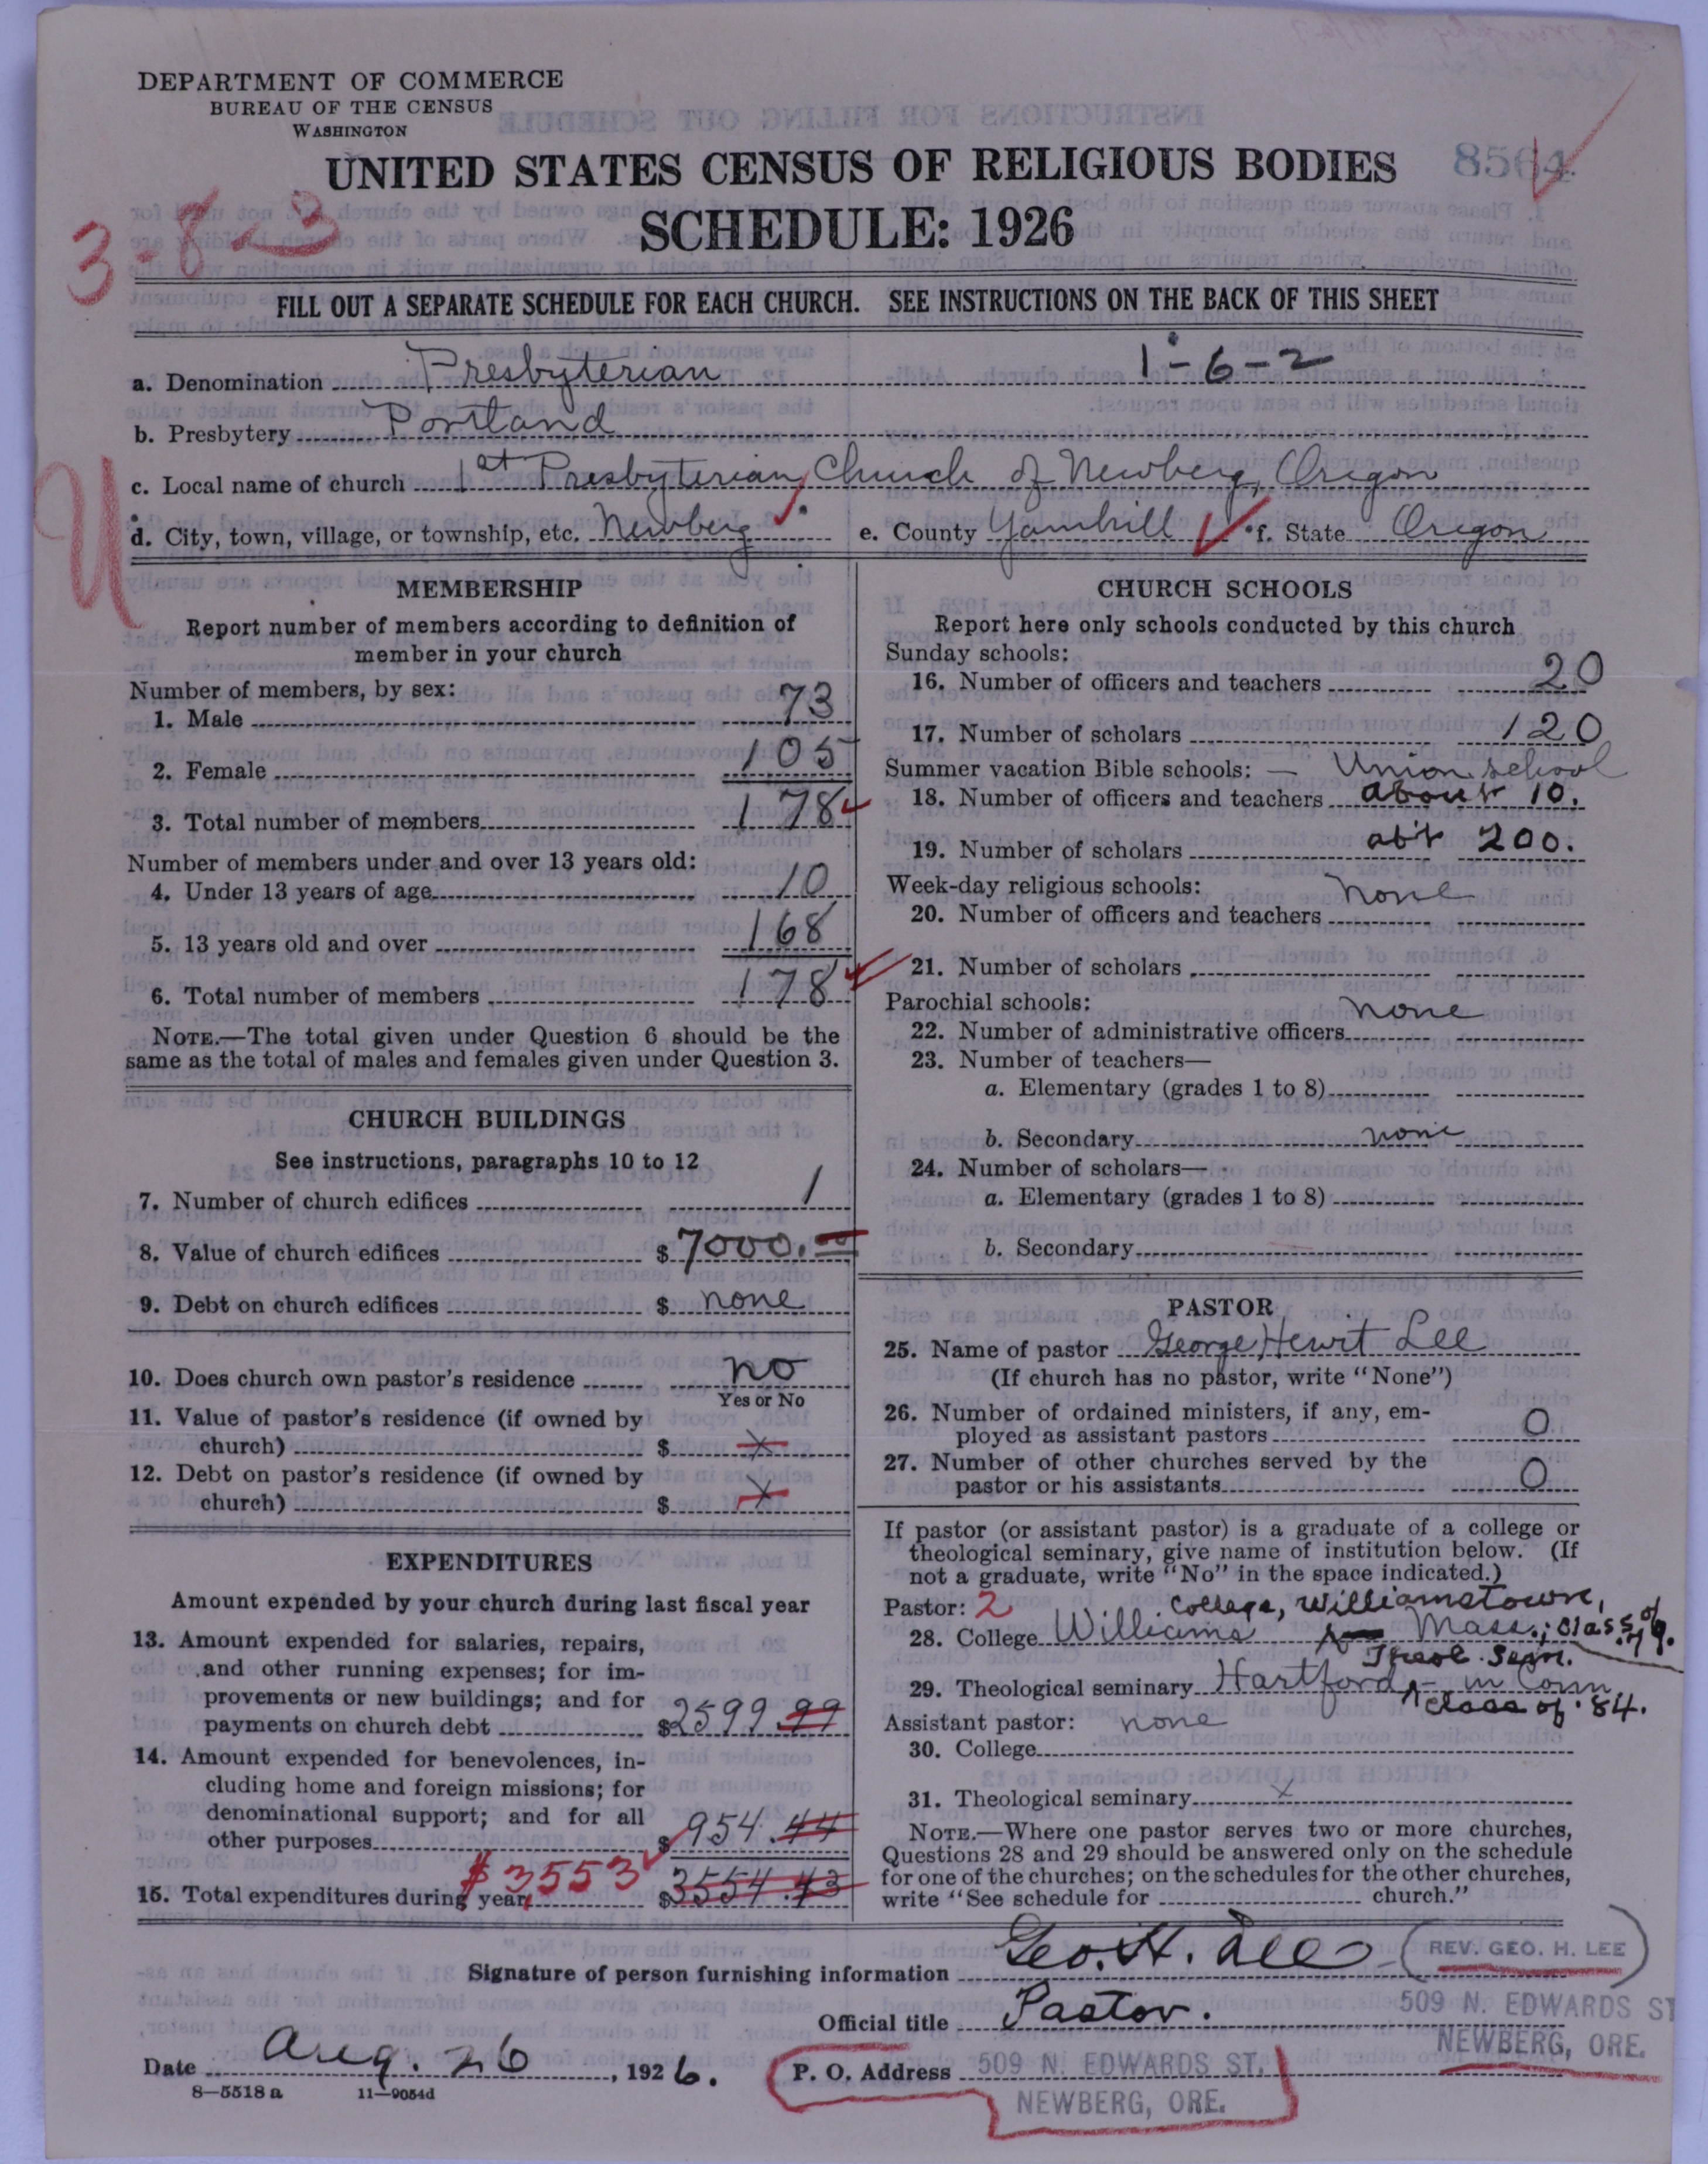 DEPARTMENT OF COMMERCE
BUREAU OF THE CENSUS
WASHINGTON
UNITED STATES CENSUS OF RELIGIOUS BODIES
8564
SCHEDULE: 1926
3-8-3
FILL OUT A SEPARATE SCHEDULE FOR EACH CHURCH. SEE INSTRUCTIONS ON THE BACK OF THIS SHEET
a. Denomination Presbyterian 1-6-2
b. Presbytery Portland
c. Local name of church 1st Presbyterian Church of Newberg, Oregon
U
d. City, town, village, or township, etc. Newberg e. County Yamhill f. State Oregon
MEMBERSHIP
Report number of members according to definition of
member in your church
Number of members, by sex:
1. Male 73
2. Female 105
3. Total number of members 178
Number of members under and over 13 years old:
4. Under 13 years of age 10
5. 13 years old and over 168
6. Total number of members 178
NOTE.—The total given under Question 6 should be the
same as the total of males and females given under Question 3.
CHURCH BUILDINGS
See instructions, paragraphs 10 to 12
7. Number of church edifices 1
8. Value of church edifices $7000.00
9. Debt on church edifices $ none
10. Does church own pastor's residence no
Yes or No
11. Value of pastor's residence (if owned by
church) $ x
12. Debt on pastor's residence (if owned by
church) $ x
EXPENDITURES
Amount expended by your church during last fiscal year
13. Amount expended for salaries, repairs,
and other running expenses; for im-
provements or new buildings; and for
payments on church debt $2599.99
14. Amount expended for benevolences, in-
cluding home and foreign missions; for
denominational support; and for all
other purposes $954.44
$3553
15. Total expenditures during year $3554.43
CHURCH SCHOOLS
Report here only schools conducted by this church
Sunday schools:
16. Number of officers and teachers 20
17. Number of scholars 120
Summer vacation Bible schools: — Union school
18. Number of officers and teachers about 10.
19. Number of scholars ab't 200.
Week-day religious schools: none
20. Number of officers and teachers
21. Number of scholars
Parochial schools: none
22. Number of administrative officers
23. Number of teachers—
a. Elementary (grades 1 to 8)
b. Secondary none
24. Number of scholars—
a. Elementary (grades 1 to 8)
b. Secondary
PASTOR
25. Name of pastor George Hewit Lee
(If church has no pastor, write "None")
26. Number of ordained ministers, if any, em-
ployed as assistant pastors 0
27. Number of other churches served by the
pastor or his assistants 0
If pastor (or assistant pastor) is a graduate of a college or
theological seminary, give name of institution below. (If
not a graduate, write "No" in the space indicated.)
Pastor: 2 College, Williamstown,
28. College Williams Mass.; Class of '79.
Theol. Sem.
29. Theological seminary Hartford - in Conn.
Class of '84.
Assistant pastor: none
30. College
31. Theological seminary x
NOTE.—Where one pastor serves two or more churches,
Questions 28 and 29 should be answered only on the schedule
for one of the churches; on the schedules for the other churches,
write "See schedule for church."
Signature of person furnishing information Geo. H. Lee - (REV. GEO. H. LEE)
509 N. EDWARDS ST
Official title Pastor.
NEWBERG, ORE.
Date Aug. 26, 1926.
P. O. Address 509 N. EDWARDS ST.
NEWBERG, ORE.
8—5518 a 11—9054d